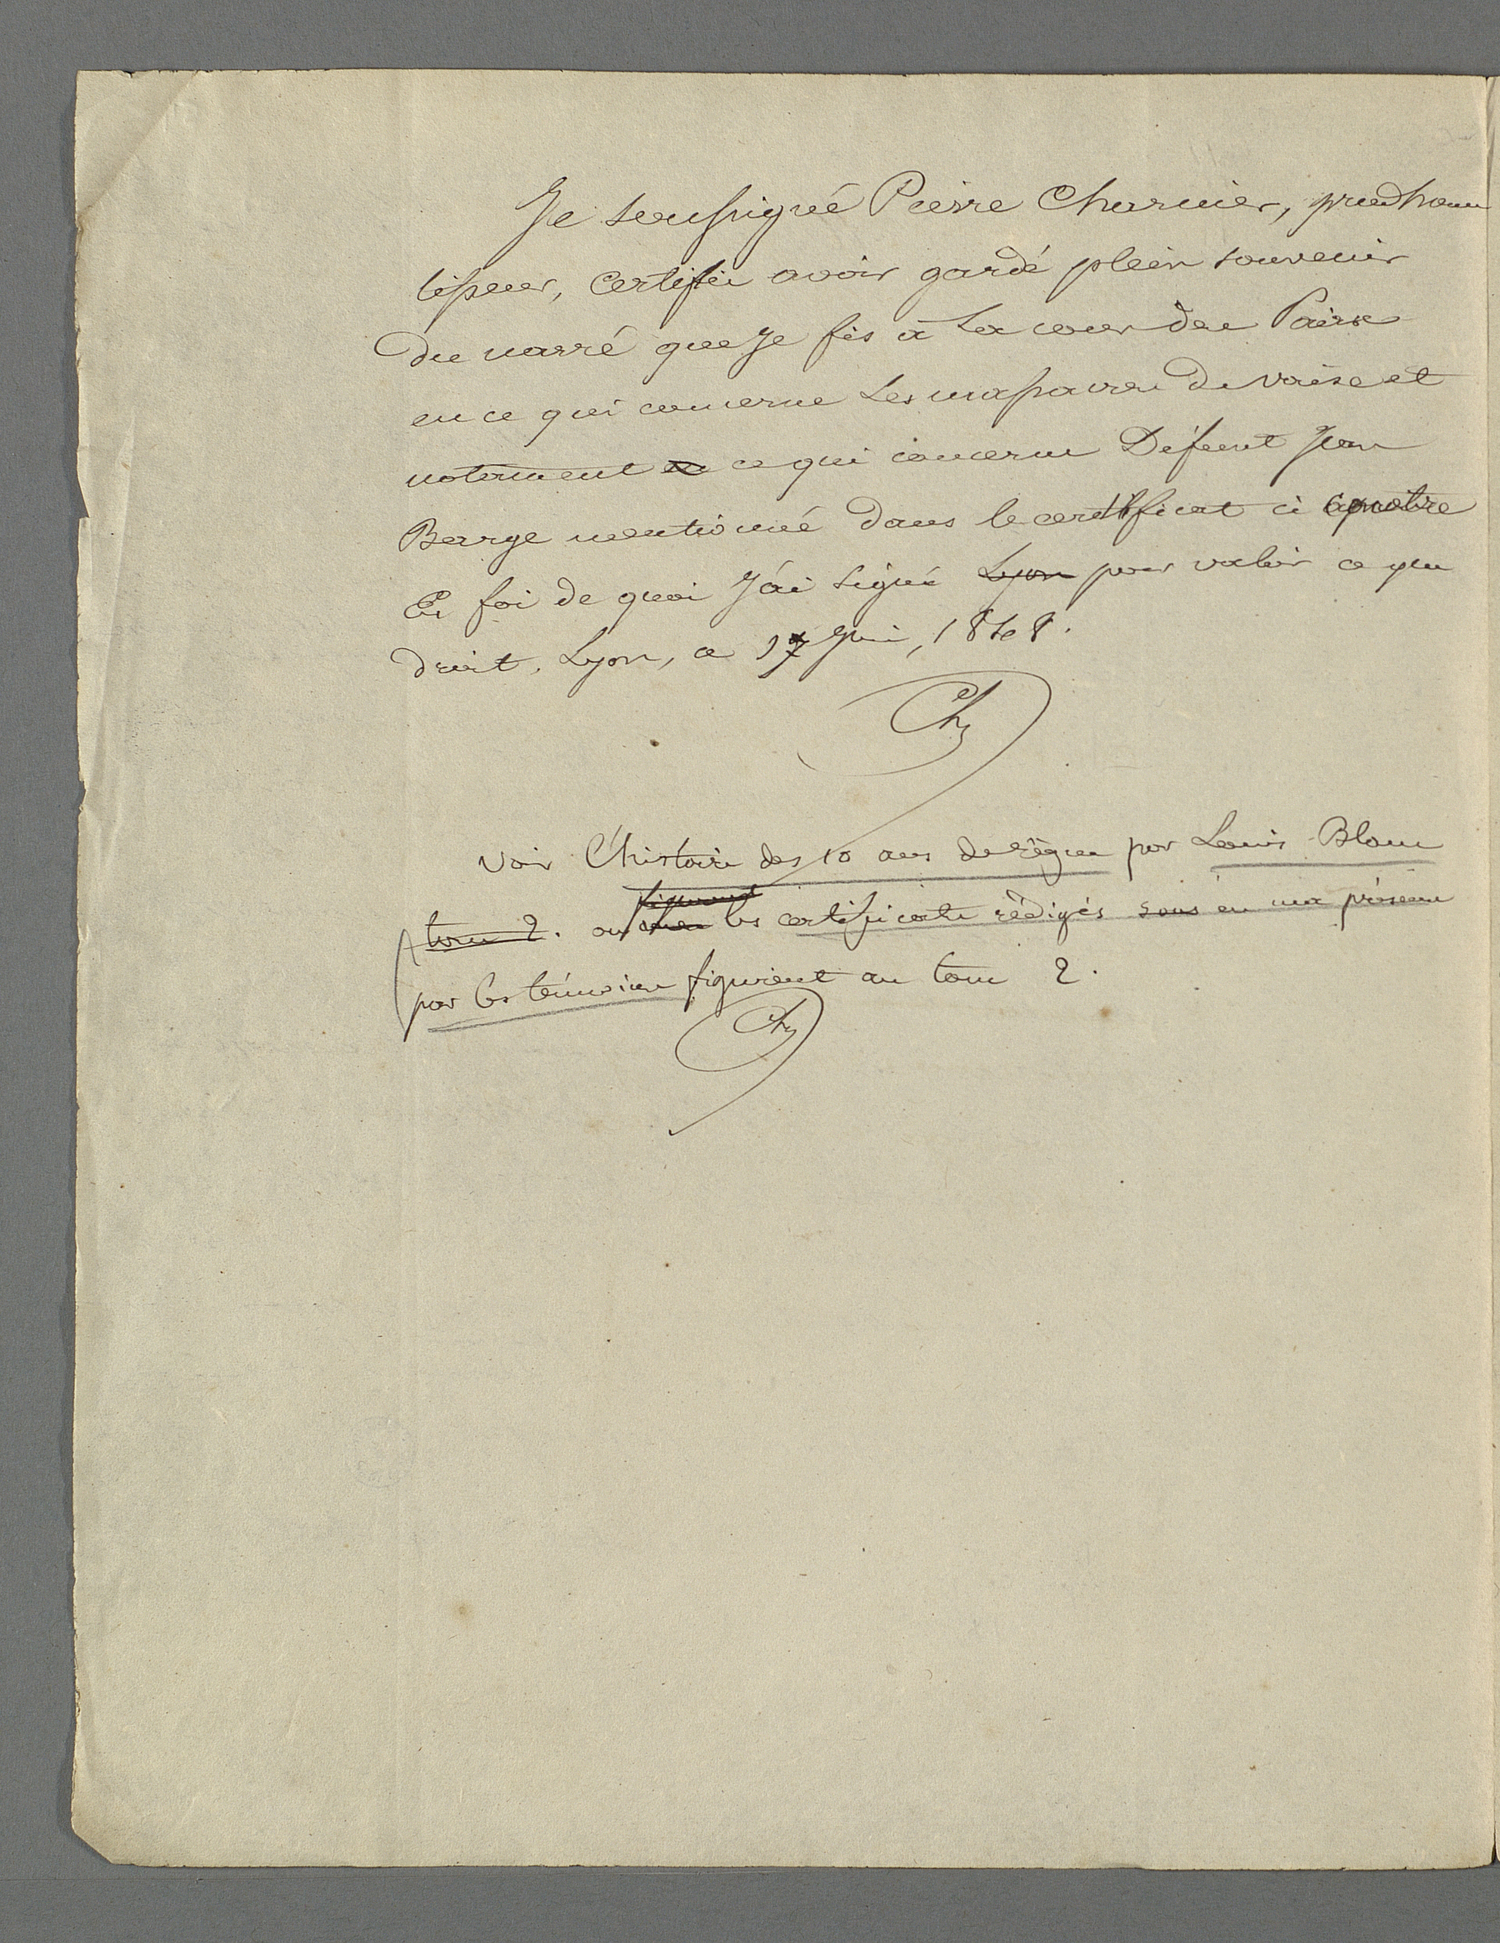 Je soussigné Pierre Charnier, prudhome
tisseur, certifie avoir gardé plein souvenir
du narré que Je fis à La cour des Pairs
en ce qui concerne Les massacres de vaise et
notament ce qui concerne Défeunt Jean
Barge mentionné dans le certificat ci contre
En foi de quoi J'ai signé Lyon pour valoir ce que
droit. Lyon, ce 17 Juin, 1848.
Ch
voir l'histoire des 10 ans de règne par Louis Blanc
figurent
tome 2. ou les certificats rédigés sous en ma présence
par les témoins figurient au tome 2.
Ch